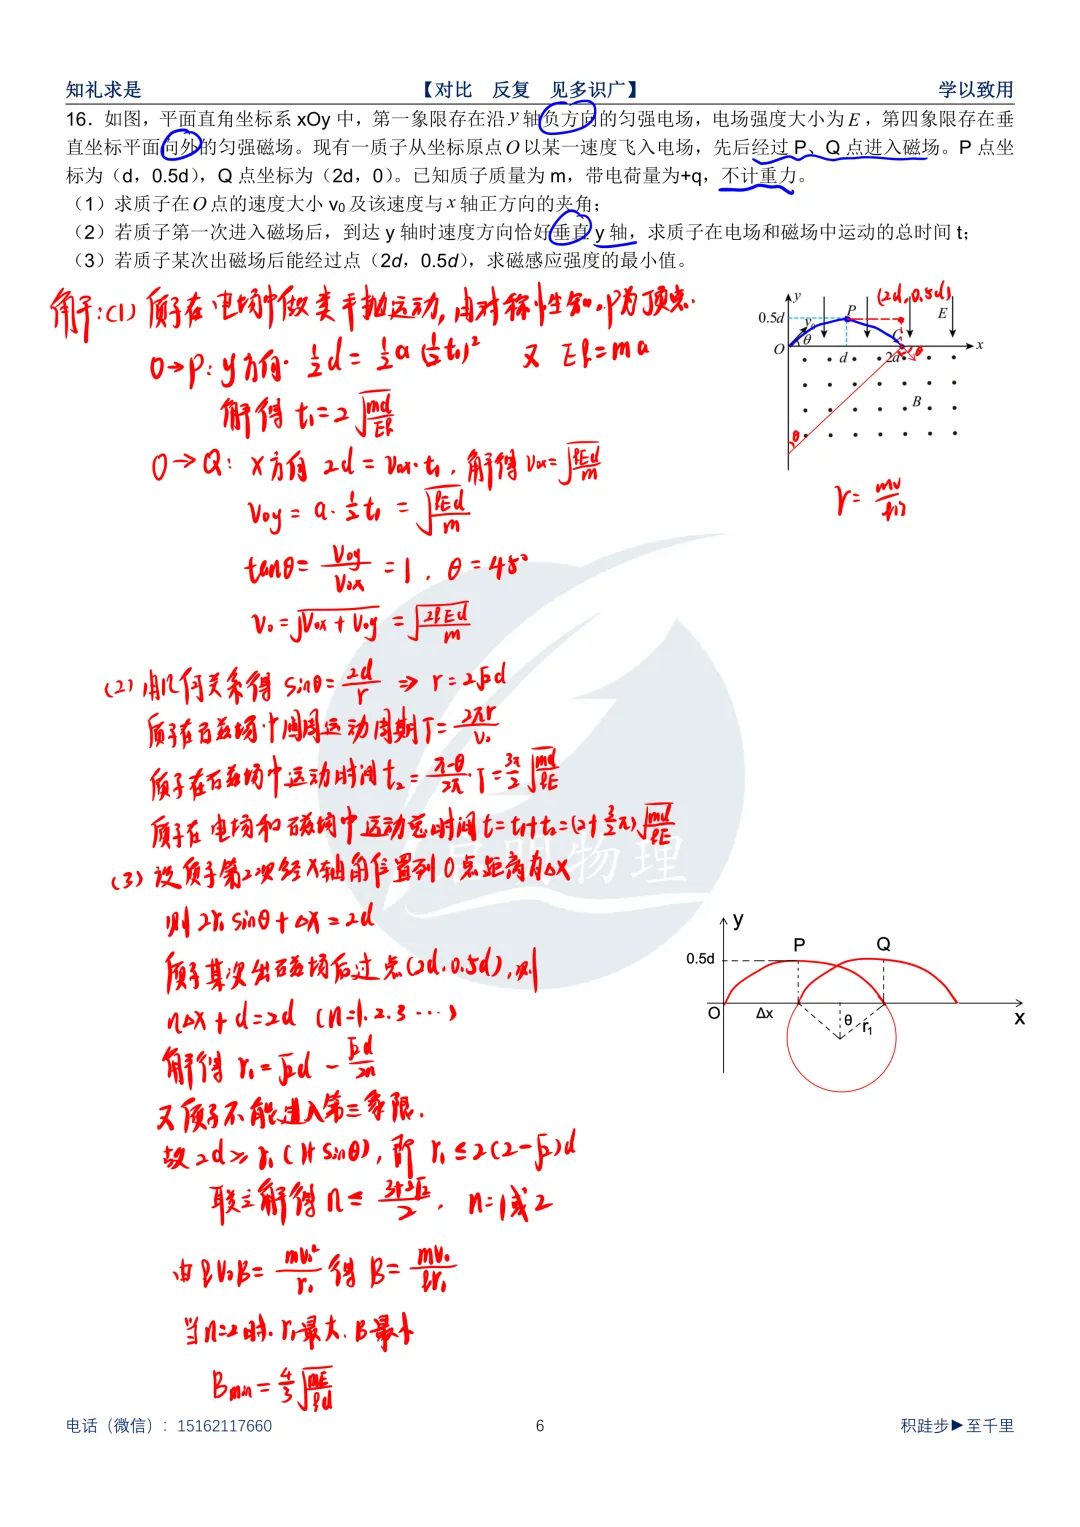 知礼求是 【对比 反复 见多识广】 学以致用
16．如图，平面直角坐标系 xOy 中，第一象限存在沿 y 轴负方向的匀强电场，电场强度大小为 E，第四象限存在垂
直坐标平面向外的匀强磁场。现有一质子从坐标原点 O 以某一速度飞入电场，先后经过 P、Q 点进入磁场。P 点坐
标为（d，0.5d），Q 点坐标为（2d，0）。已知质子质量为 m，带电荷量为+q，不计重力。
（1）求质子在 O 点的速度大小 v₀ 及该速度与 x 轴正方向的夹角；
（2）若质子第一次进入磁场后，到达 y 轴时速度方向恰好垂直 y 轴，求质子在电场和磁场中运动的总时间 t；
（3）若质子某次出磁场后能经过点（2d，0.5d），求磁感应强度的最小值。
解：(1) 质子在电场中做类平抛运动，由对称性知，P为顶点.
O→P：y方向. ½d = ½a(½t₁)² 又 Eq = ma
解得 t₁=2√(md/Eq)
O→Q：x方向 2d = v₀ₓ·t₁，解得 v₀ₓ=√(qEd/m)
v₀y = a·½t₁ = √(qEd/m)
tanθ = v₀y/v₀ₓ = 1，θ = 45°
v₀ = √(v₀ₓ + v₀y) = √(2qEd/m)
(2) 由几何关系得 sinθ = 2d/r ⇒ r = 2√2d
质子在磁场中圆周运动周期T = 2πr/v₀
质子在磁场中运动时间 t₂ = (π-θ)/2π · T = 3π/2 √(md/qE)
质子在电场和磁场中运动总时间 t = t₁+t₂ = (2+3/2π)√(md/qE)
(3) 设质子第2次经X轴的位置到O点距离为Δx
则 2r₁sinθ + Δx = 2d
质子某次出磁场后过点(2d，0.5d)，则
nΔx + d = 2d (n=1.2.3···)
解得 r₁ = √2d - √2d/2n
又质子不能进入第三象限.
故 2d ≥ r₁(1+sinθ)，即 r₁ ≤ 2(2-√2)d
联立解得 n ≤ (3+2√2)/2，n=1或2
由 qv₀B = mv₀²/r₁ 得 B = mv₀/qr₁
当n=2时. r₁最大. B最小
Bmin = 4/3 √(mE/qd)
y
(2d, 0.5d)
0.5d P E
v₀
O θ d 2d Q θ x
B
θ
r = mv/qB
y
0.5d P Q
O Δx θ r₁ x
昆明物理
电话（微信）：15162117660 6 积跬步►至千里